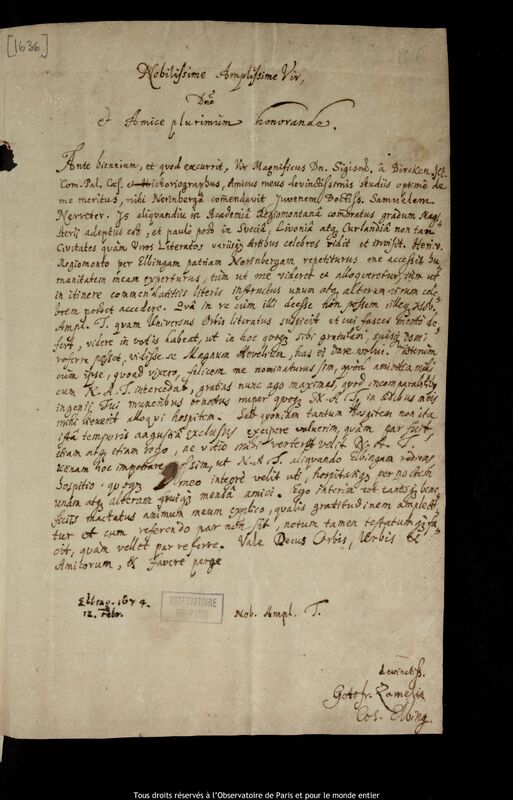 [1636]
Nobilissime Amplissime Vir,
Dne
et Amice plurimum honorande.
Ante biennium, et quod excurrit, Vir Magnificus Dn. Sigism. à Bircken
Com. Pal. Cæs. Historiographus, Amicus meus devinctissimis studiis optimè de
me meritus, mihi Norinbergâ commendavit Juvenem Doctiss. Samuelem
Nerreter. Is aliquandiu in Academiâ Regiomontanâ commoratus gradum Mag-
sterij adeptus est, et paulò post in Sueciâ, Livoniâ atq. Curlandiâ non tam
Civitates quàm Viros Literatos variisq. Artibus celebres vidit et invisit. Hic
Regiomonto per Elbingam patriam Norinbergam repetiturus me accessit, hu-
manitatem meam experturus, tùm ut me videret et alloqueretur, tùm ut
in itinere commendatitiis literis instructus unum atq. alterum virum cele-
brem posset accedere. Quâ in re cùm illi deesse non possem illeq. Nob.
Ampl. T. quam Universus Orbis literatus suspicit et cui fasces meritò de-
fert, videre in votis habeat, ut in hoc quoq. sibi gratulari, suisq. domi
referre posset, vidisse se Magnum Hevelium, has ei dare volui.
cùm ipse, quoad vixero, felicem me nominaturus sim, quòd amicitia mihi
cum N. A. T. intercedat, gratias nunc ago maximas, quod incomparabilis
ingenii Tui muneribus ornatus nuper quoq. N. A. T. in ædibus meis
mihi licuerit alloqui hospitem. Sed quoniam tantum Hospitem non ita
istâ temporis angustiâ exclusus excipere valuerim, quàm par fuit,
etiam atq. etiam rogo, ne vitio mihi vertere velit N. A. T.
hoc impetrare possim, ut N. A. T. aliquando Elbingam rediens,
hospitio quoq. meo integrè velit uti, hospitalisq. per noctem
unam atq. alteram quoq. mensâ amici. Ego interim tot tantisq. bene-
ficiis mactatus animum meum explico, qualis gratitudinem amplecti-
tur et cum referendo par non sit, notum tamen testatumq. fa-
cit, quàm vellet par referre. Vale Decus Orbis, Urbis &
Amicorum, & favere perge
Elbing. 1674.
12. Febr.
OBSERVATOIRE
DE PARIS
Nob. Ampl. T.
devinctiss.
Gotofr. Zamelius
Cos. Elbing.
Tous droits réservés à l'Observatoire de Paris et pour le monde entier